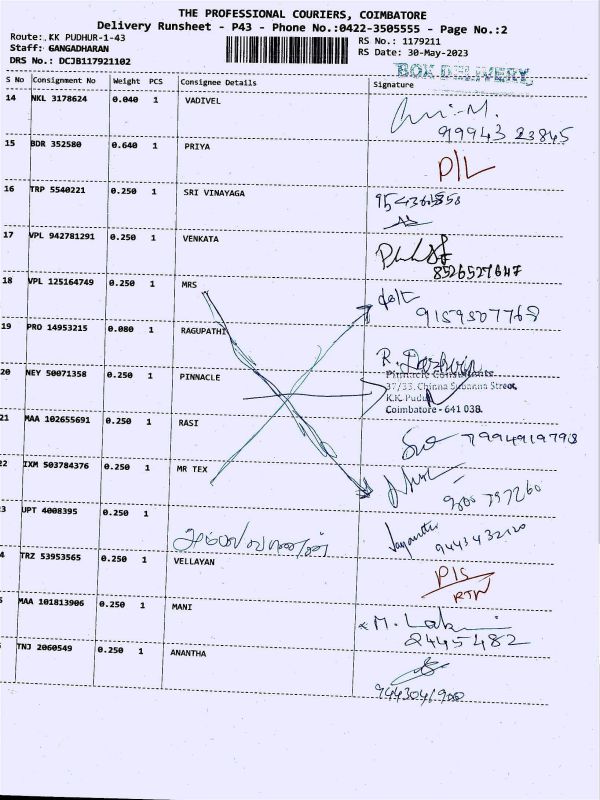 THE PROFESSIONAL COURIERS, COIMBATORE
Delivery Runsheet - P43 - Phone No.:0422-3505555 - Page No.:2
Route: KK PUDHUR-1-43
RS No.: 1179211
Staff: GANGADHARAN
RS Date: 30-May-2023
DRS No.: DCJB117921102
BOX DELIVERY
S No Consignment No Weight PCS Consignee Details Signature
14 NKL 3178624 0.040 1 VADIVEL
99943 23845
15 BDR 352580 0.640 1 PRIYA
D/L
16 TRP 5540221 0.250 1 SRI VINAYAGA
17 VPL 942781291 0.250 1 VENKATA
8526527647
18 VPL 125164749 0.250 1 MRS
9159507768
19 PRO 14953215 0.080 1 RAGUPATHI
R.
20 NEY 50071358 0.250 1 PINNACLE
Pinnacle Consultants
37/33, Chinna Subanna Street,
K.K. Pudur
Coimbatore - 641 038.
21 MAA 102655691 0.250 1 RASI
7994919798
22 IXM 503784376 0.250 1 MR TEX
3 UPT 4008395 0.250 1
Jayanthi 9443432120
4 TRZ 53953565 0.250 1 VELLAYAN
RTN
MAA 101813906 0.250 1 MANI
M.
2445482
TNJ 2060549 0.250 1 ANANTHA
9443041900